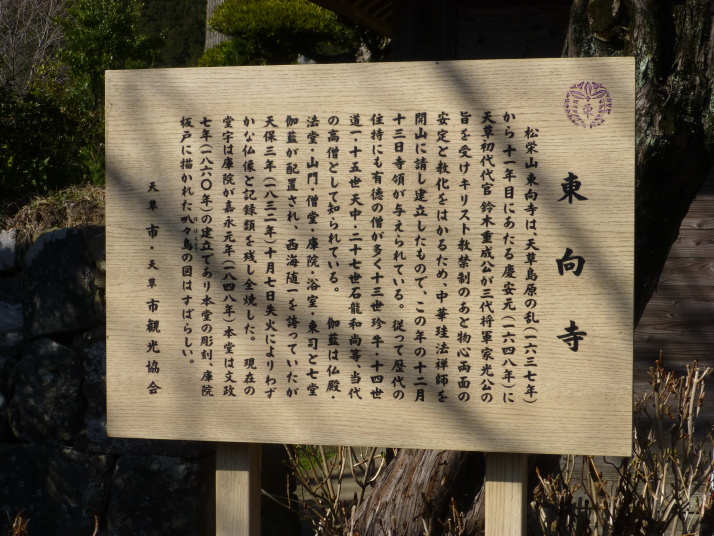 東向寺
松栄山東向寺は、天草島原の乱(一六三七年)
から十一年目にあたる慶安元(一六四八年)に
天草初代代官 鈴木重成公が三代将軍家光公の
旨を受けキリスト教禁制のあと物心両面の
安定と教化をはかるため、中華珪法禅師を
開山に請し建立したもので、この年の十二月
十三日寺領が与えられている。従って歴代の
住持にも有徳の僧が多く十三世珍牛・十四世
道一・十五世天中・二十七世石龍和尚等、当代
の高僧として知られている。 伽藍は仏殿・
法堂・山門・僧堂・庫院・浴室・東司と七堂
伽藍が配置され、西海随一を誇っていたが
天保三年(一八三二年)十月七日失火によりわず
かな仏像と記録類を残し全焼した。 現在の
堂宇は庫院が嘉永元年(一八四八年)本堂は文政
七年(一八六〇年)の建立であり本堂の彫刻、庫院
板戸に描かれた叭々鳥の図はすばらしい。
天草市・天草市観光協会